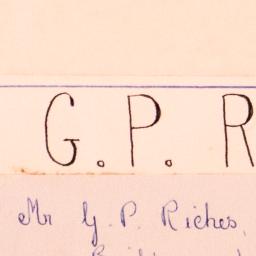 G. P. R
Mr G. P. Riches,